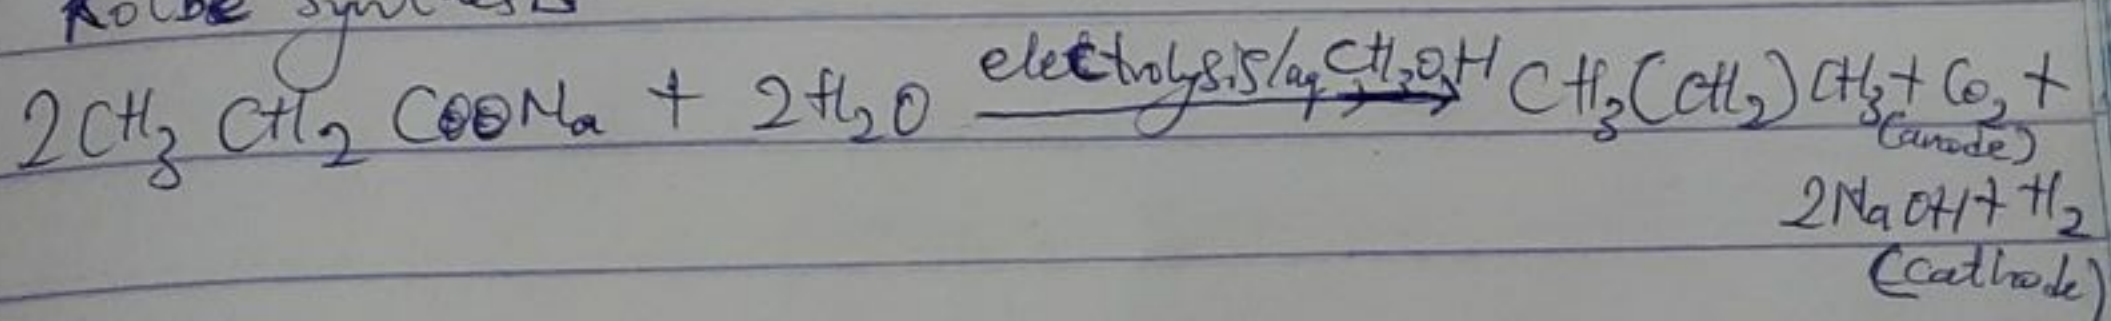 Kolbe synthesis
2CH₃ CH₂ COONa + 2H₂O electrolysis/aq CH₃OH → CH₃(CH₂)CH₃ + CO₂ +
(anode)
2NaOH + H₂
(cathode)